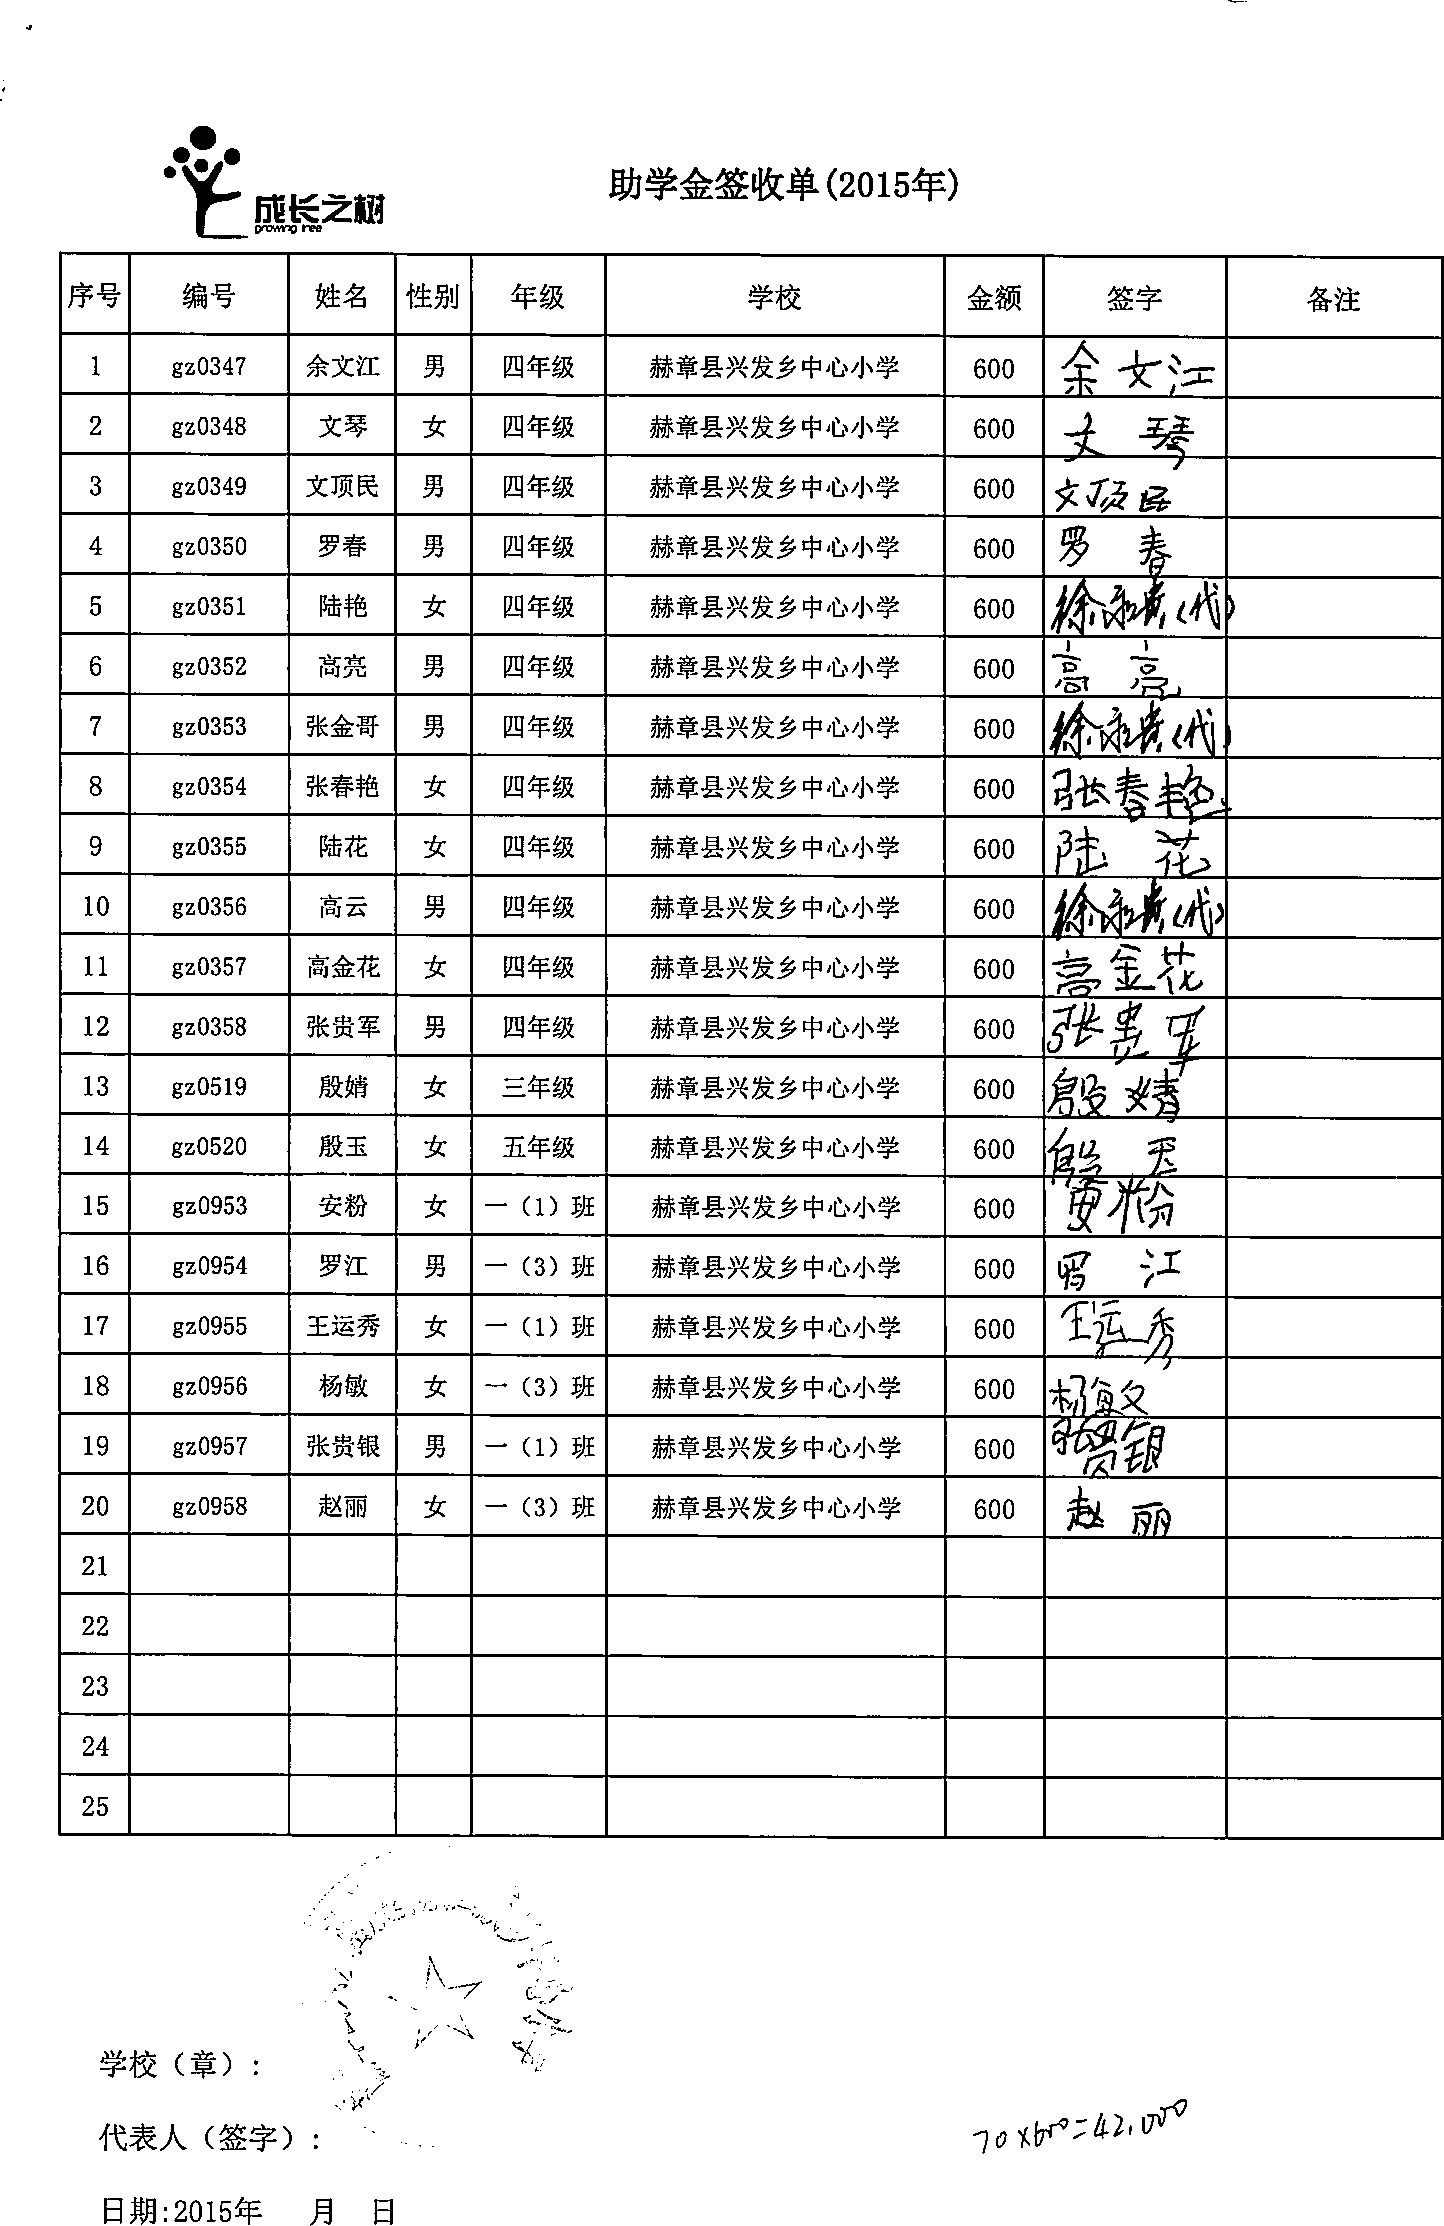 成长之树
growing tree
助学金签收单(2015年)
序号 编号 姓名 性别 年级 学校 金额 签字 备注
1 gz0347 余文江 男 四年级 赫章县兴发乡中心小学 600 余文江
2 gz0348 文琴 女 四年级 赫章县兴发乡中心小学 600 文琴
3 gz0349 文顶民 男 四年级 赫章县兴发乡中心小学 600 文顶民
4 gz0350 罗春 男 四年级 赫章县兴发乡中心小学 600 罗春
5 gz0351 陆艳 女 四年级 赫章县兴发乡中心小学 600 徐永贵(代)
6 gz0352 高亮 男 四年级 赫章县兴发乡中心小学 600 高亮
7 gz0353 张金哥 男 四年级 赫章县兴发乡中心小学 600 徐永贵(代)
8 gz0354 张春艳 女 四年级 赫章县兴发乡中心小学 600 张春艳
9 gz0355 陆花 女 四年级 赫章县兴发乡中心小学 600 陆花
10 gz0356 高云 男 四年级 赫章县兴发乡中心小学 600 徐永贵(代)
11 gz0357 高金花 女 四年级 赫章县兴发乡中心小学 600 高金花
12 gz0358 张贵军 男 四年级 赫章县兴发乡中心小学 600 张贵军
13 gz0519 殷婧 女 三年级 赫章县兴发乡中心小学 600 殷婧
14 gz0520 殷玉 女 五年级 赫章县兴发乡中心小学 600 殷玉
15 gz0953 安粉 女 一（1）班 赫章县兴发乡中心小学 600 安粉
16 gz0954 罗江 男 一（3）班 赫章县兴发乡中心小学 600 罗江
17 gz0955 王运秀 女 一（1）班 赫章县兴发乡中心小学 600 王运秀
18 gz0956 杨敏 女 一（3）班 赫章县兴发乡中心小学 600 杨敏
19 gz0957 张贵银 男 一（1）班 赫章县兴发乡中心小学 600 张贵银
20 gz0958 赵丽 女 一（3）班 赫章县兴发乡中心小学 600 赵丽
21
22
23
24
25
学校（章）:
代表人（签字）:
70×600=42,000
日期:2015年 月 日